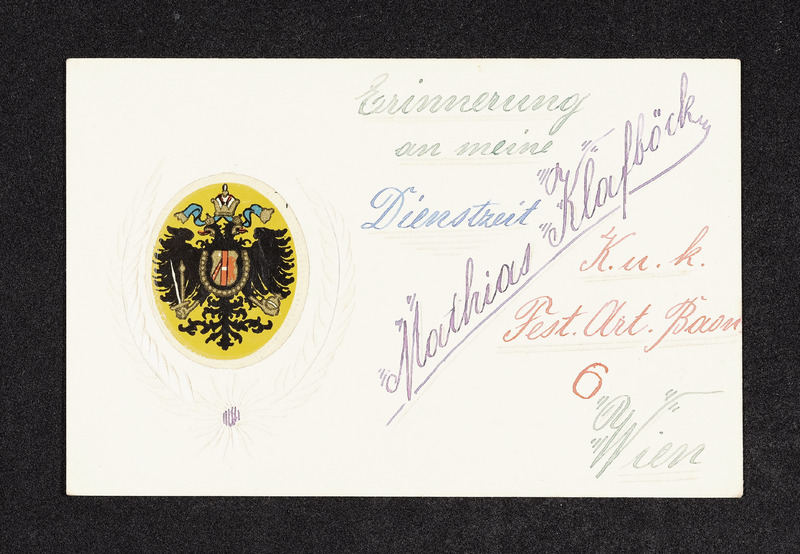 Erinnerung
an meine
Dienstzeit
Mathias Klafböck
K. u. k.
Fest. Art. Baon
6
Wien